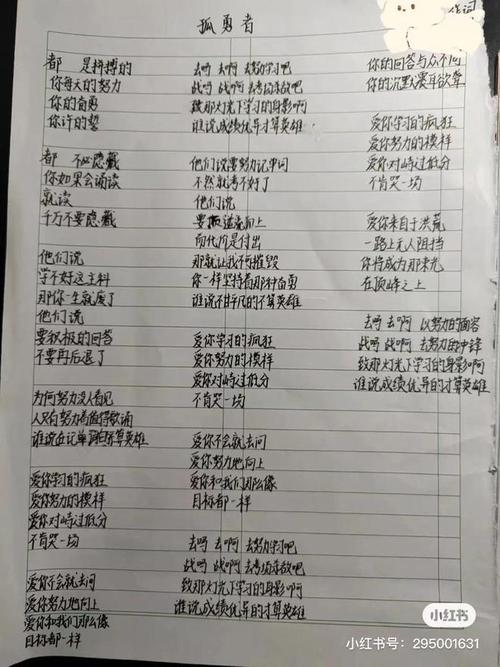 孤勇者
作词
都 是拼搏的
你每天的努力
你的奋勇
你许的誓
都 不必隐藏
你如果会诵读
就读
千万不要隐藏
他们说
学不好这主科
那你一生就废了
他们说
要积极的回答
不要再后退了
为何努力没人看见
人只有努力者值得歌诵
谁说在记单词的不算英雄
爱你学习的疯狂
爱你努力的模样
爱你对峙过低分
不肯哭一场
爱你不会就去问
爱你努力地向上
爱你和我们那么像
目标都一样
去吗 去啊 去努力学习吧
战吗 战啊 去考场亲放吧
致那灯光下学习的身影啊
谁说成绩优异才算英雄
他们说要努力记单词
不然就考不好了
他们说
要 逆流而上
而代价是付出
那就让我不可摧毁
你一样坚持着那种奋勇
谁说不平凡的不算英雄
爱你学习的疯狂
爱你努力的模样
爱你对峙过低分
不肯哭一场
爱你不会就去问
爱你努力地向上
爱你和我们那么像
目标都一样
去吗 去啊 去努力学习吧
战吗 战啊 去考场亲放吧
致那灯光下学习的身影啊
谁说成绩优异的才算英雄
你的回答与众不同
你的沉默震耳欲聋
爱你学习的疯狂
爱你努力的模样
爱你对峙过低分
不肯哭一场
爱你来自于洪荒
一路上无人阻挡
你将成为那束光
在顶峰之上
去吗 去啊 以努力的面容
战吗 战啊 去努力的冲锋
致那灯光下学习的身影啊
谁说成绩优异的才算英雄
小红书
小红书号：295001631